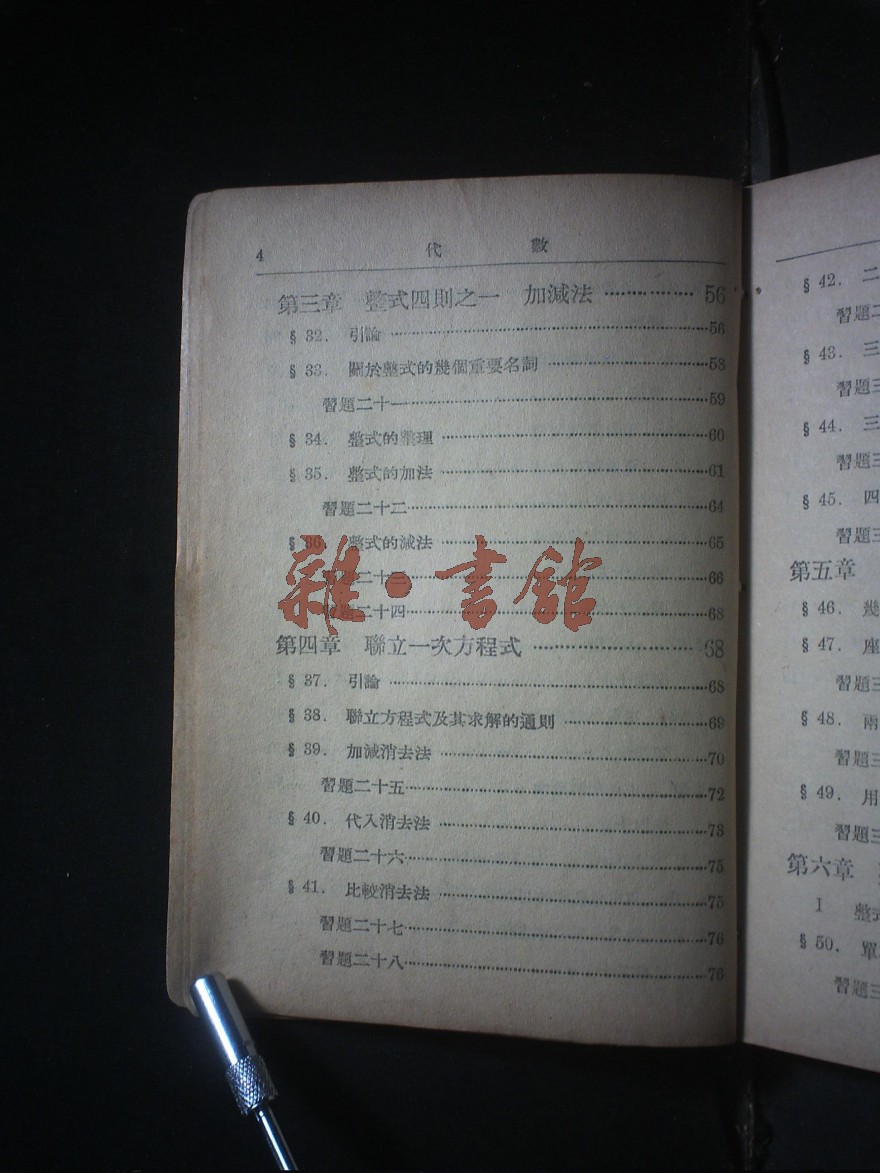 4 代 數
第三章 整式四則之一 加減法 ⋯⋯⋯⋯⋯ 56
§ 32. 引論 ⋯⋯⋯⋯⋯ 56
§ 33. 關於整式的幾個重要名詞 ⋯⋯⋯⋯⋯ 58
習題二十一 ⋯⋯⋯⋯⋯ 59
§ 34. 整式的整理 ⋯⋯⋯⋯⋯ 60
§ 35. 整式的加法 ⋯⋯⋯⋯⋯ 61
習題二十二 ⋯⋯⋯⋯⋯ 64
§ 36. 整式的減法 ⋯⋯⋯⋯⋯ 65
習題二十三 ⋯⋯⋯⋯⋯ 66
雜·書館
習題二十四 ⋯⋯⋯⋯⋯ 68
第四章 聯立一次方程式 ⋯⋯⋯⋯⋯ 68
§ 37. 引論 ⋯⋯⋯⋯⋯ 68
§ 38. 聯立方程式及其求解的通則 ⋯⋯⋯⋯⋯ 69
§ 39. 加減消去法 ⋯⋯⋯⋯⋯ 70
習題二十五 ⋯⋯⋯⋯⋯ 72
§ 40. 代入消去法 ⋯⋯⋯⋯⋯ 73
習題二十六 ⋯⋯⋯⋯⋯ 75
§ 41. 比較消去法 ⋯⋯⋯⋯⋯ 75
習題二十七 ⋯⋯⋯⋯⋯ 76
習題二十八 ⋯⋯⋯⋯⋯ 76
§ 42. 二
習題二
§ 43. 三
習題三
§ 44. 三
習題三
§ 45. 四
習題三
第五章
§ 46. 幾
§ 47. 座
習題三
§ 48. 兩
習題三
§ 49. 用
習題三
第六章
I 整式
§ 50. 單
習題三